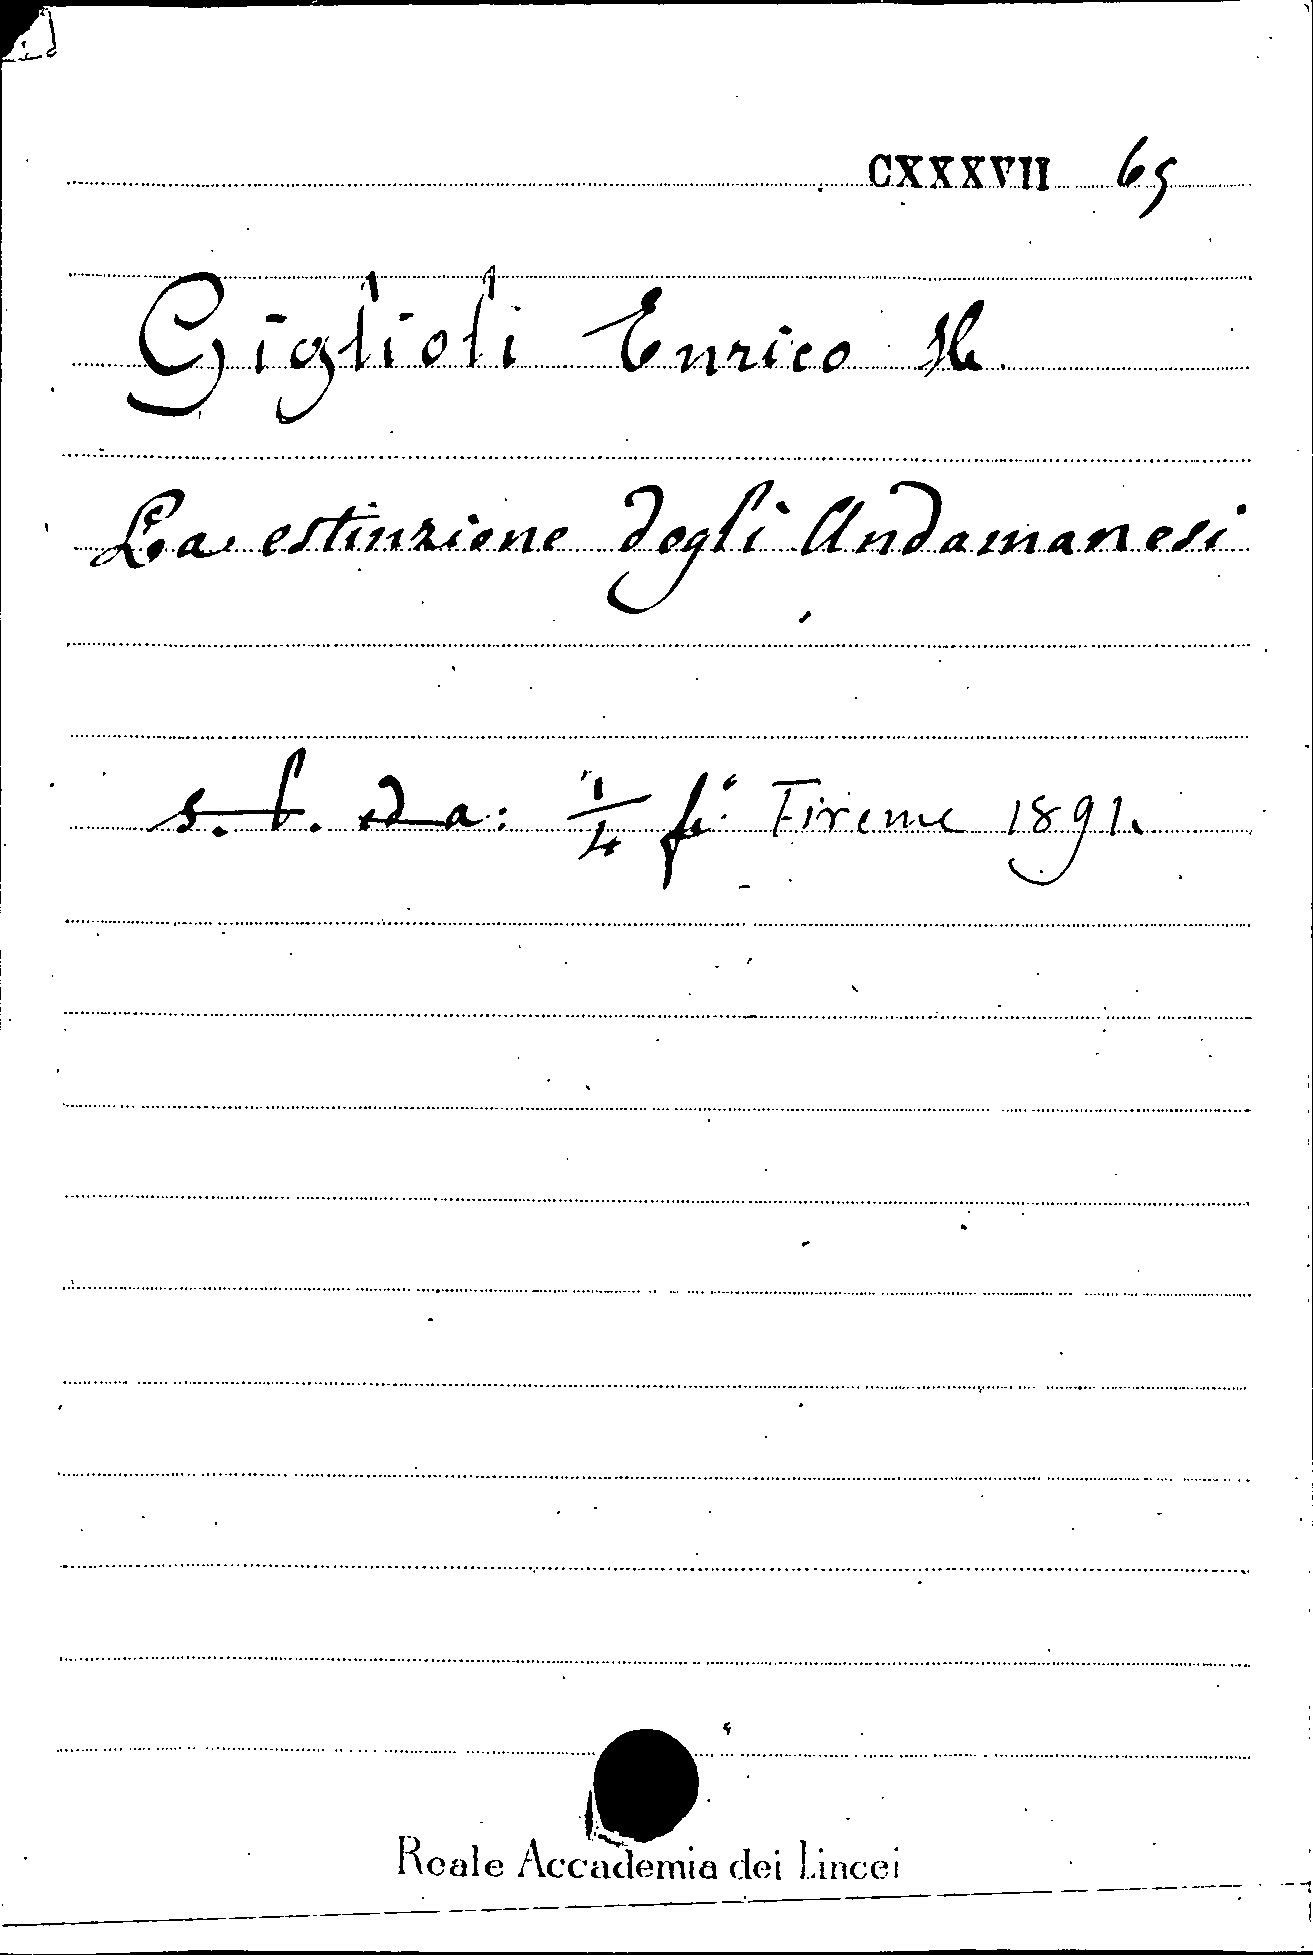 CXXXVII 65
Giglioli Enrico H.
La estinzione degli Andamanesi
s. l. ed a: 1/4 fo Firenze 1891.
Reale Accademia dei Lincei